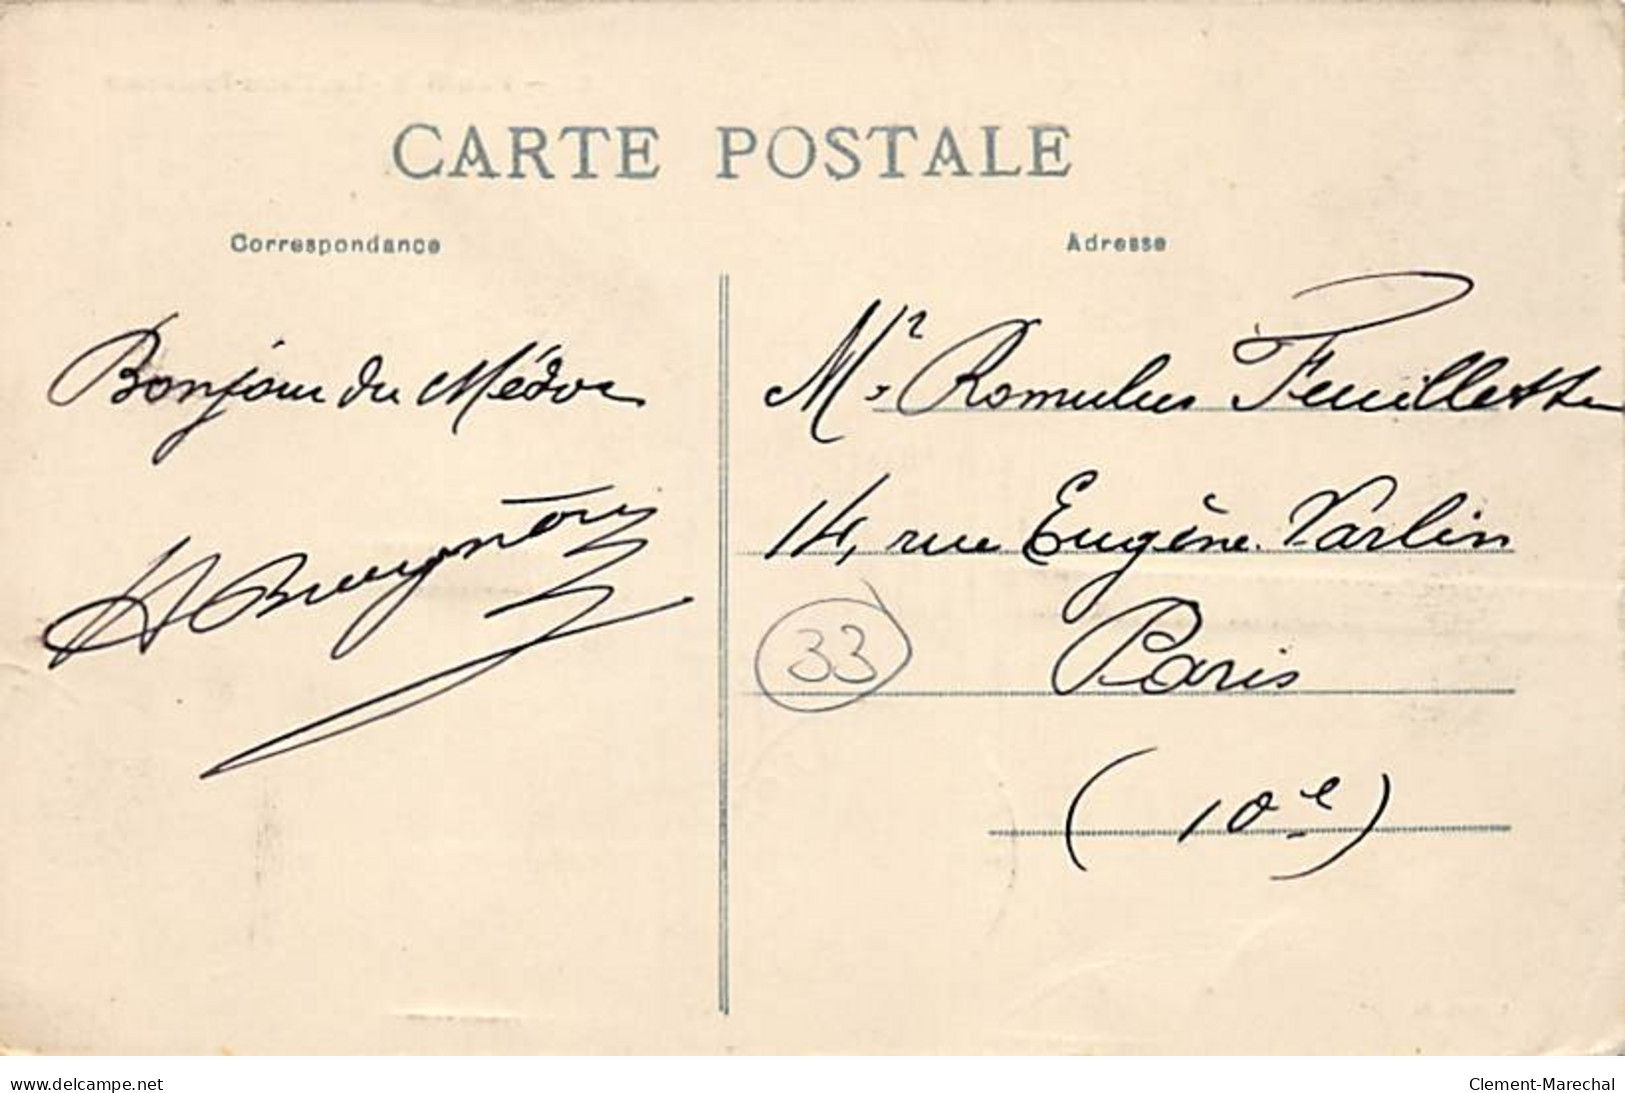 CARTE POSTALE
Correspondance
Adresse
Bonjour du Médoc
Mr Romulus Feuillette
14, rue Eugène Varlin
33
Paris
(10e)
www.delcampe.net
Clement-Marechal